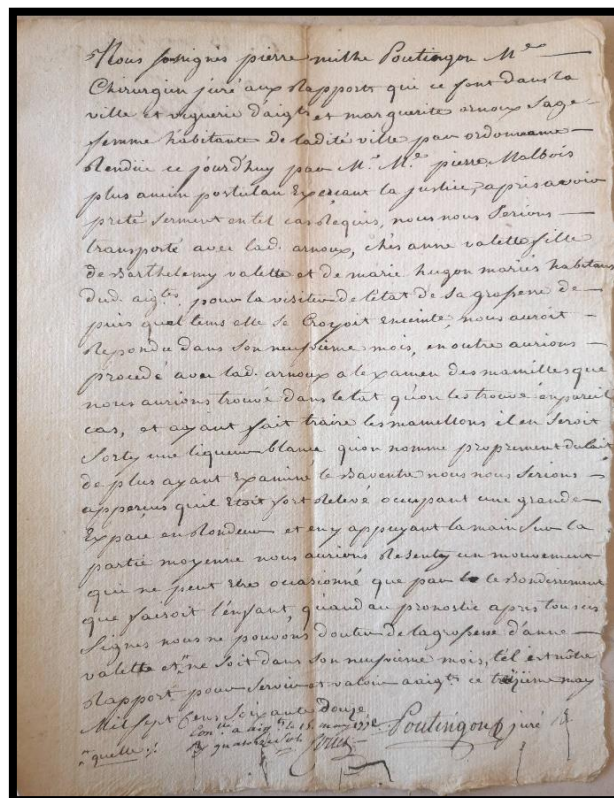 Nous soussignés pierre milhe Poutingon M.e
Chirurgien juré aux Rapports qui ce font dans la
ville et viguerie d'aig.ts et marguerite arnoux sage-
femme habitante de ladité ville par ordonnance
Rendüe ce jourd'huy par M.r M.e pierre Malbois
plus ancien postulan Exerçant la justice, apres avoir
preté serment en tel cas Requis, nous nous serions
transporté avec lad. arnoux, chès anne valette fille
de Barthelemy valette et de marie hugon mariés habitans
dud. aig.ts pour la visiter de l'état de sa grossesse de-
puis quel tems elle se Croyoit Enceinte, nous auroit
Repondu dans son neufsieme mois, en outre aurions
procédé avec lad. arnoux a lexamen des mamilles que
nous aurions trouvé dans letat qu'on les trouve en pareil
cas, et ayant fait traire les mamellons il en seroit
sorty une liqueur blanche qu'on nomme proprement du lait
de plus ayant Examiné le Baventre nous nous serions
apperçus qu'il Etoit fort Relevé occupant une grande
Expace en Rondeur et en y appuyant la main sur la
partie moyenne nous aurions Resenty un mouvement
qui ne peut Etre occasionné que par le Bondissement
que faisoit l'enfant, quand au pronostic apres tous ces
signes nous ne pouvons douter de la grossesse d'anne
valette et ne soit dans son neufsieme mois, tél est nôtre
Rapport pour servir et valoir a aig.ts ce treisieme may
Mil sept Cens soixante douze
Poutingon juré
a aig.ts le 15 may 1772
quatorze sols
quelle